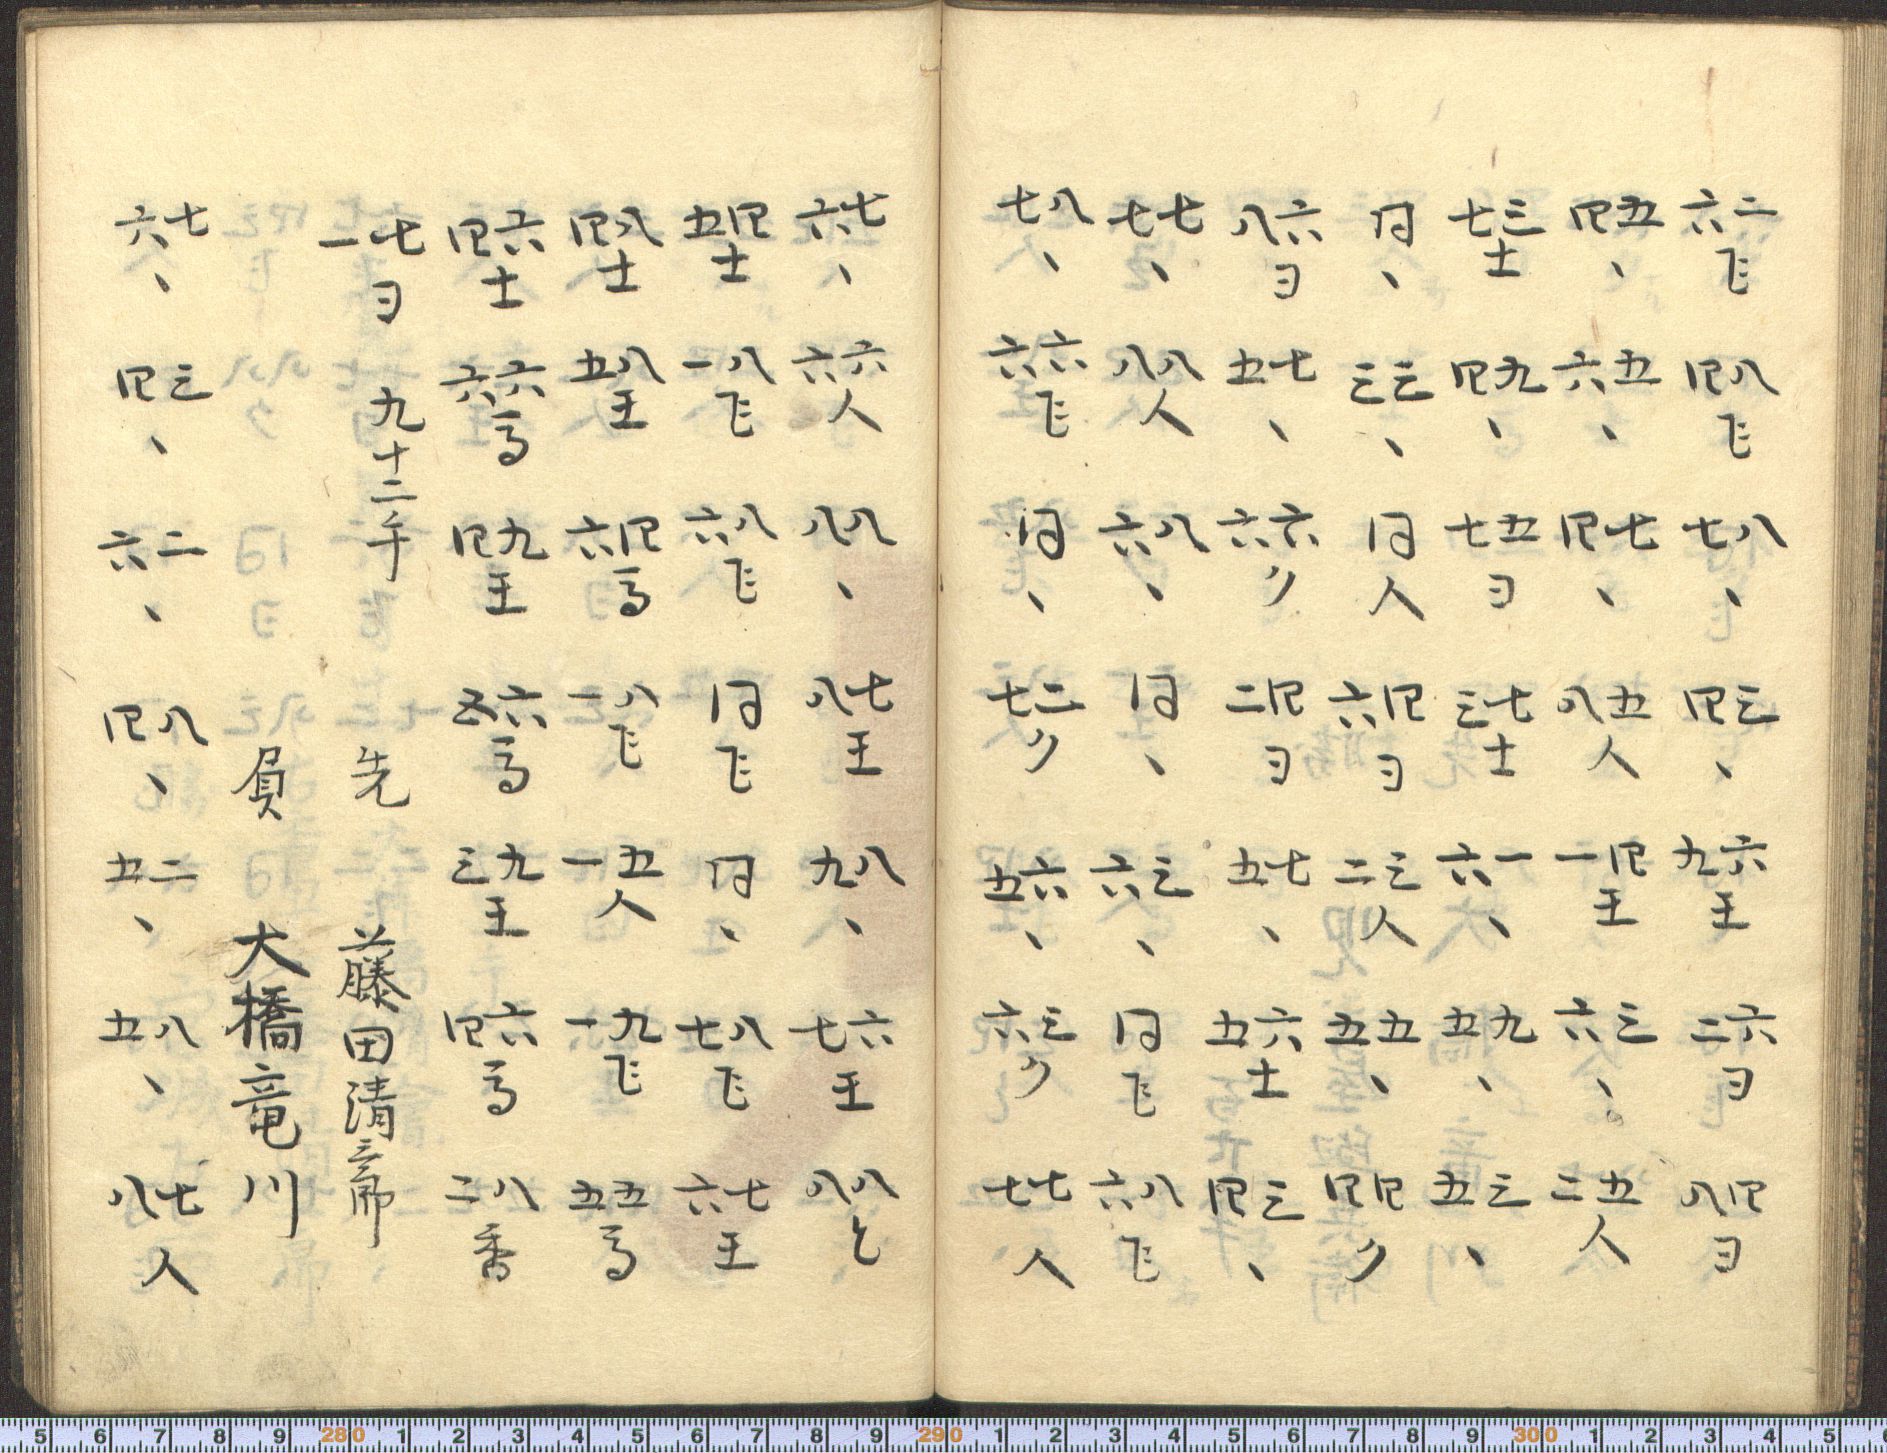 二六飞 八四飞 八七、 三四、 六九王 六二ヨ 四八ヨ
五四、 五六、 七四、 五八人 四一王 三六、 五二人
三七士 九四、 五七ヨ 七三士 一六、 九五、 三五、
同、 三三、 同人 四六ヨ 三二人 五五、 四四ク
六八ヨ 七五、 六六ク 四二ヨ 七五、 六五士 三四、
七七、 八八人 八六、 同、 三六、 同飞 八六飞
八七、 六六飞 同、 二七ク 六五、 三六ク 七七人
七六、 六六人 八八、 七八王 八九、 六七王 八八と
四五士 八一飞 八六飞 同飞 同、 八七飞 七六王
八四士 八五王 四六馬 八一飞 五一人 九一飞 五五馬
六四士 六六馬 九四王 六五馬 九三王 六四馬 八二香
七一ヨ 九十二手 先 藤田清三郎
負 大橋竜川
七六、 三四、 二六、 八四、 二五、 八五、 七八人